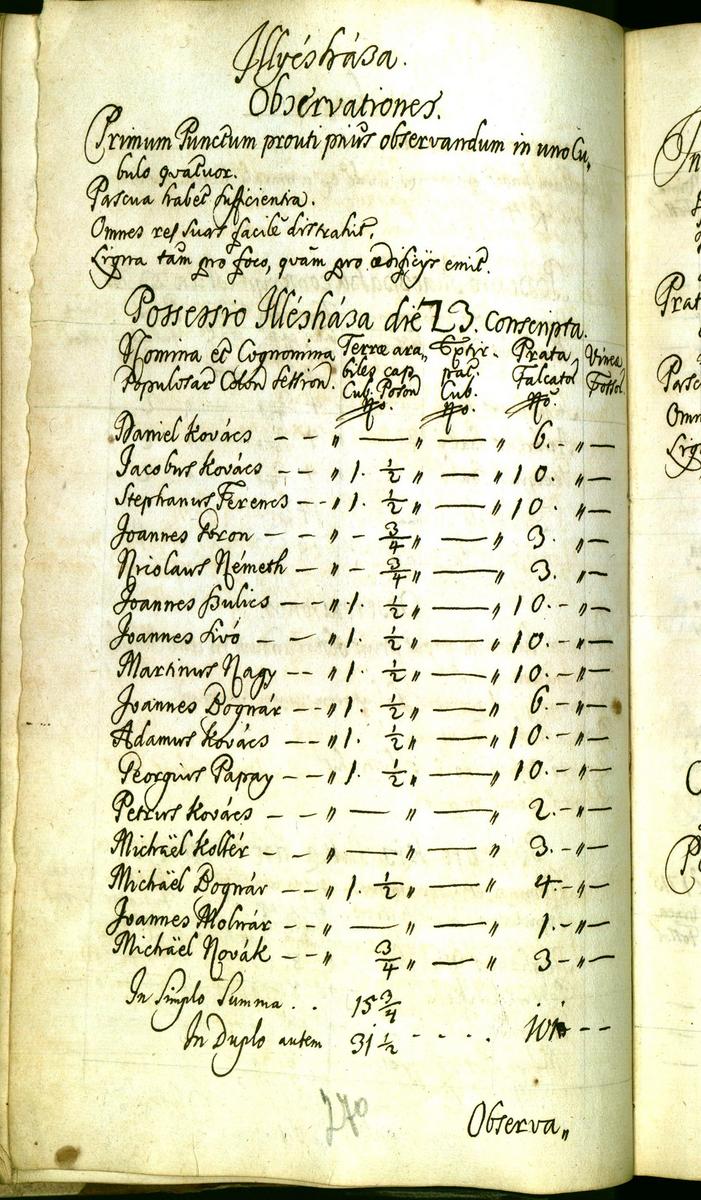 Illyésháza.
Observationes.
Primum Punctum prouti prius observandum in uno Cu„
bulo quatuor.
Pascua habet sufficientia.
Omnes res suas facile distrahit.
Ligna tam pro foco, quam pro ædificÿs emit.
Possessio Illésháza die 23. conscripta.
Nomina et Cognomina Terræ ara„ Prata Vinea
Populosar Colon Session. biles cap. Falcator Fossor
Cub. Poson Cub. Nō.
Nō. Nō.
Daniel Kovács – – „ — „ — „ 6. – „ –
Jacobus Kovács – – „ 1. ½ „ — „ 10. – „ –
Stephanus Ferencs – – „ 1. ½ „ — „ 10. – „ –
Joannes – – „ – ¾ „ — „ 3. – „ –
Nicolaus Németh – – „ – ¾ „ — „ 3. – „ –
Joannes – – „ 1. ½ „ — „ 10. – „ –
Joannes – – „ 1. ½ „ — „ 10. – „ –
Martinus Nagy – – „ 1. ½ „ — „ 10. – „ –
Joannes Bognár – – „ 1. ½ „ — „ 6. – „ –
Adamus Kovács – – „ 1. ½ „ — „ 10. – „ –
Georgius Papay – – „ 1. ½ „ — „ 10. – „ –
Petrus Kovács – – „ — „ — „ 2. – „ –
Michäel Koltér – – „ — „ — „ 3. – „ –
Michäel Bognár – – „ 1. ½ „ — „ 4. – „ –
Joannes Molnár – – „ — „ — „ 1. – „ –
Michäel Novák – – „ ¾ „ — „ 3 – „ –
In Simplo Summa . . 15 ¾
In Duplo autem 31 ½ - - . . 101 - -
270
Observa„